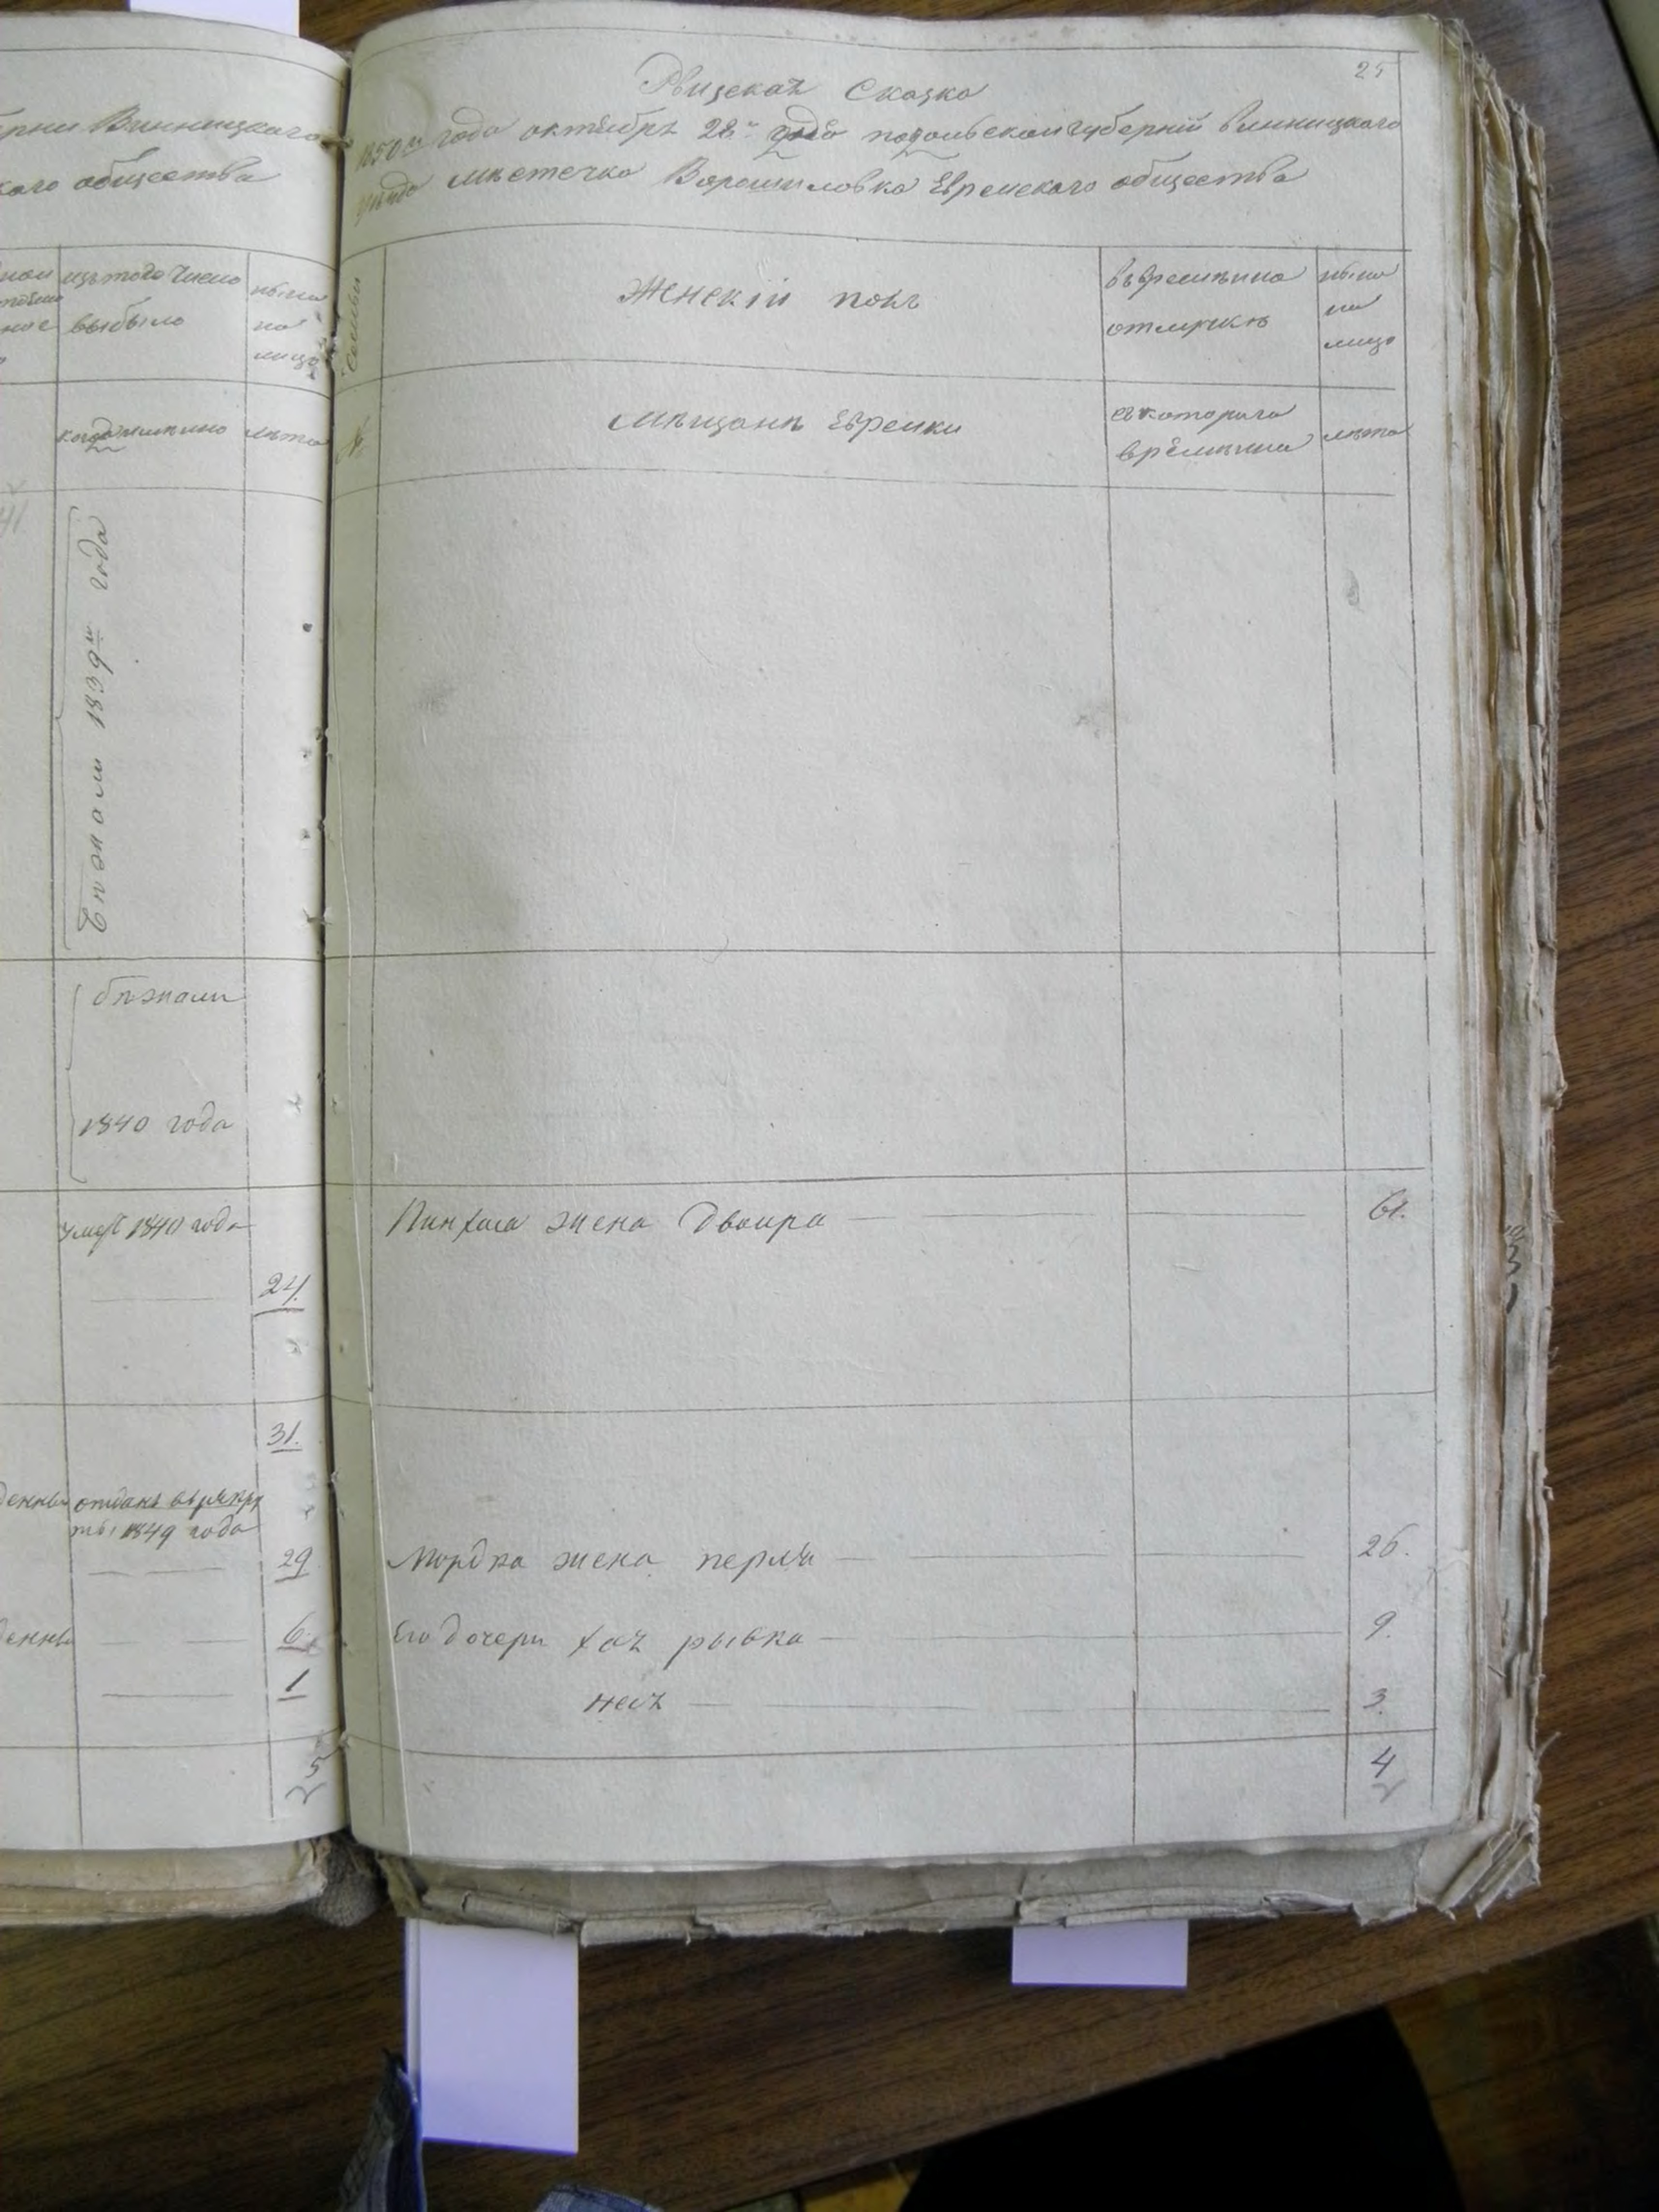 рни Винницкаго
каго общества
изъ того числа
выбыло
ныне
на
лицо
когда имянно
лета
Бежали 1839го года
бежали
1840 года
умер 1840 года
24.
31.
денны отданъ въ рекру
ты 1849 года
29
денны
6
1
5
25
Ревизская Сказка
1850го года октября 28го дня подольской губернiи винницкаго
уезда местечка Ворошиловка Еврейскаго общества
Семьи
Женскiй полъ
въ временно
отлучке
ныне
на
лицо
№
Мещане Еврейки
съ котораго
времени
лета
Пинхаса жена Двойра
61.
Мордка жена перля
26.
Его дочери хая рывка
9.
неся
3.
4